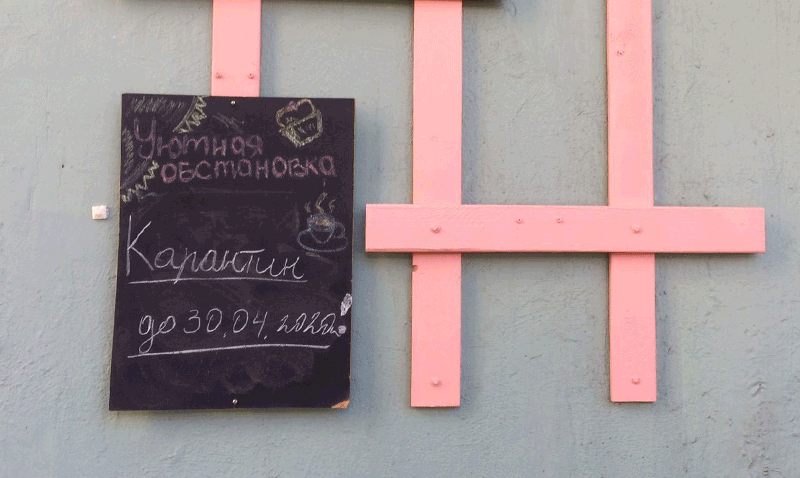 Уютная
обстановка
Карантин
до 30.04.2020г.